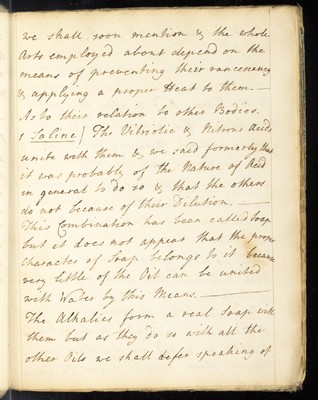 we shall soon mention & the whole
Arts employed about depend on the
means of preventing their rancescency
& applying a proper Heat to them. —
As to their relation to other Bodies.
1 Saline / The Vitriolic & Nitrous Acids
unite with them & we said formerly that
it was probably of the Nature of Acid
in general to do so & that the others
do not because of their Dilution. —
This Combination has been called Soap
but it does not appear that the proper
character of Soap belongs to it because
very little of the Oil can be united
with Water by this Means. —
The Alkalies form a real Soap with
them but as they do so with all the
other Oils we shall defer speaking of